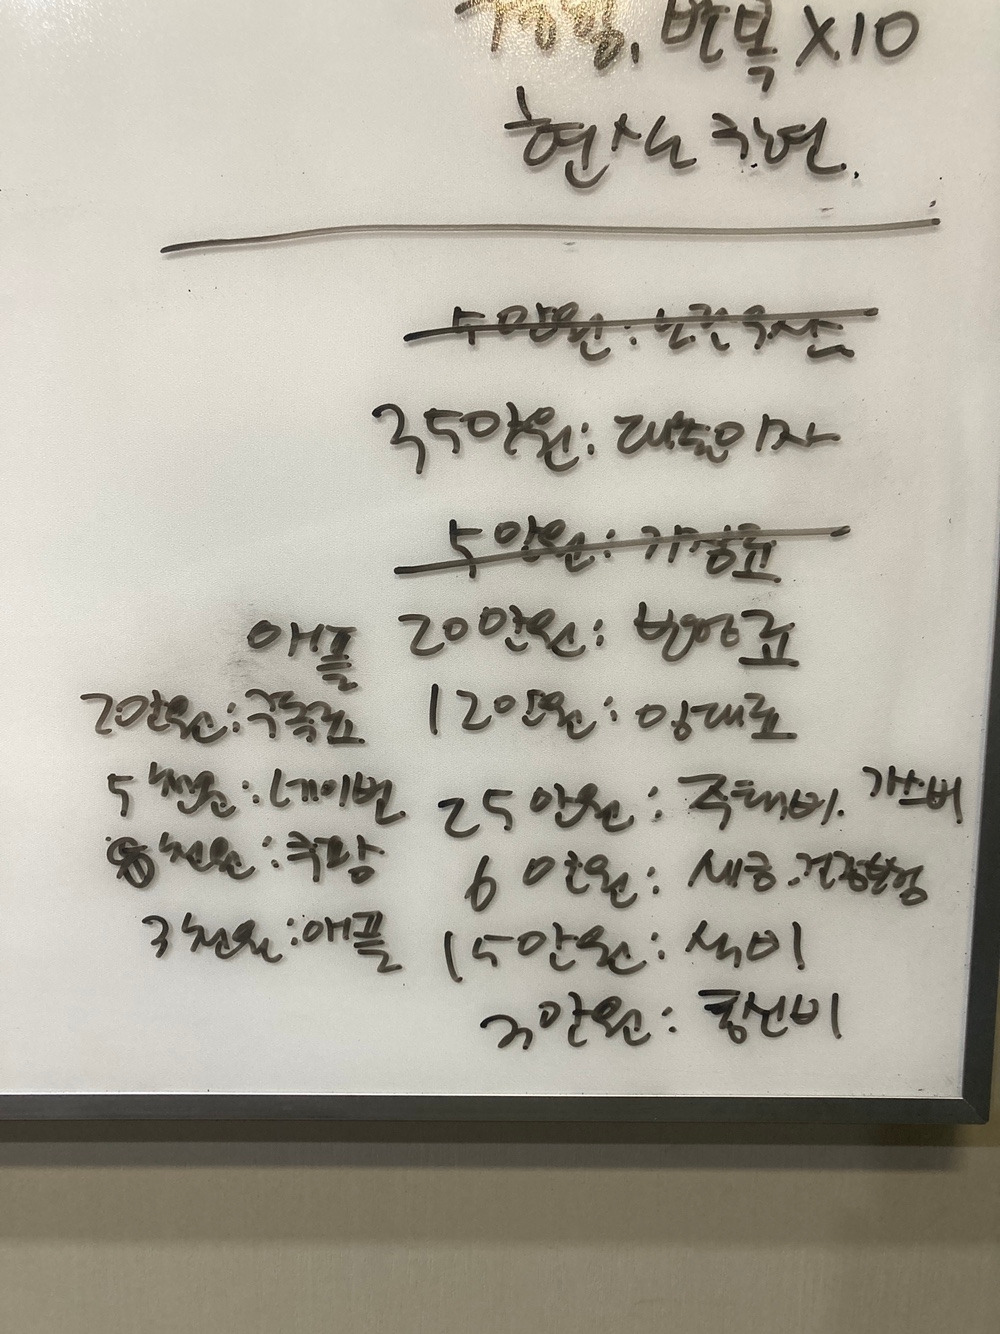 반복 X10
현실 직면.
5만원: 노란우산
35만원: 대출이자
5만원:
20만원: 병원료
12만원: 임대료
25만원: 주택비. 가스비
6만원: 세금.건강보험
15만원: 식비
3만원: 통신비
애플
2만원: 구독료
5천원: 네이버
8천원: 쿠팡
3천원: 애플